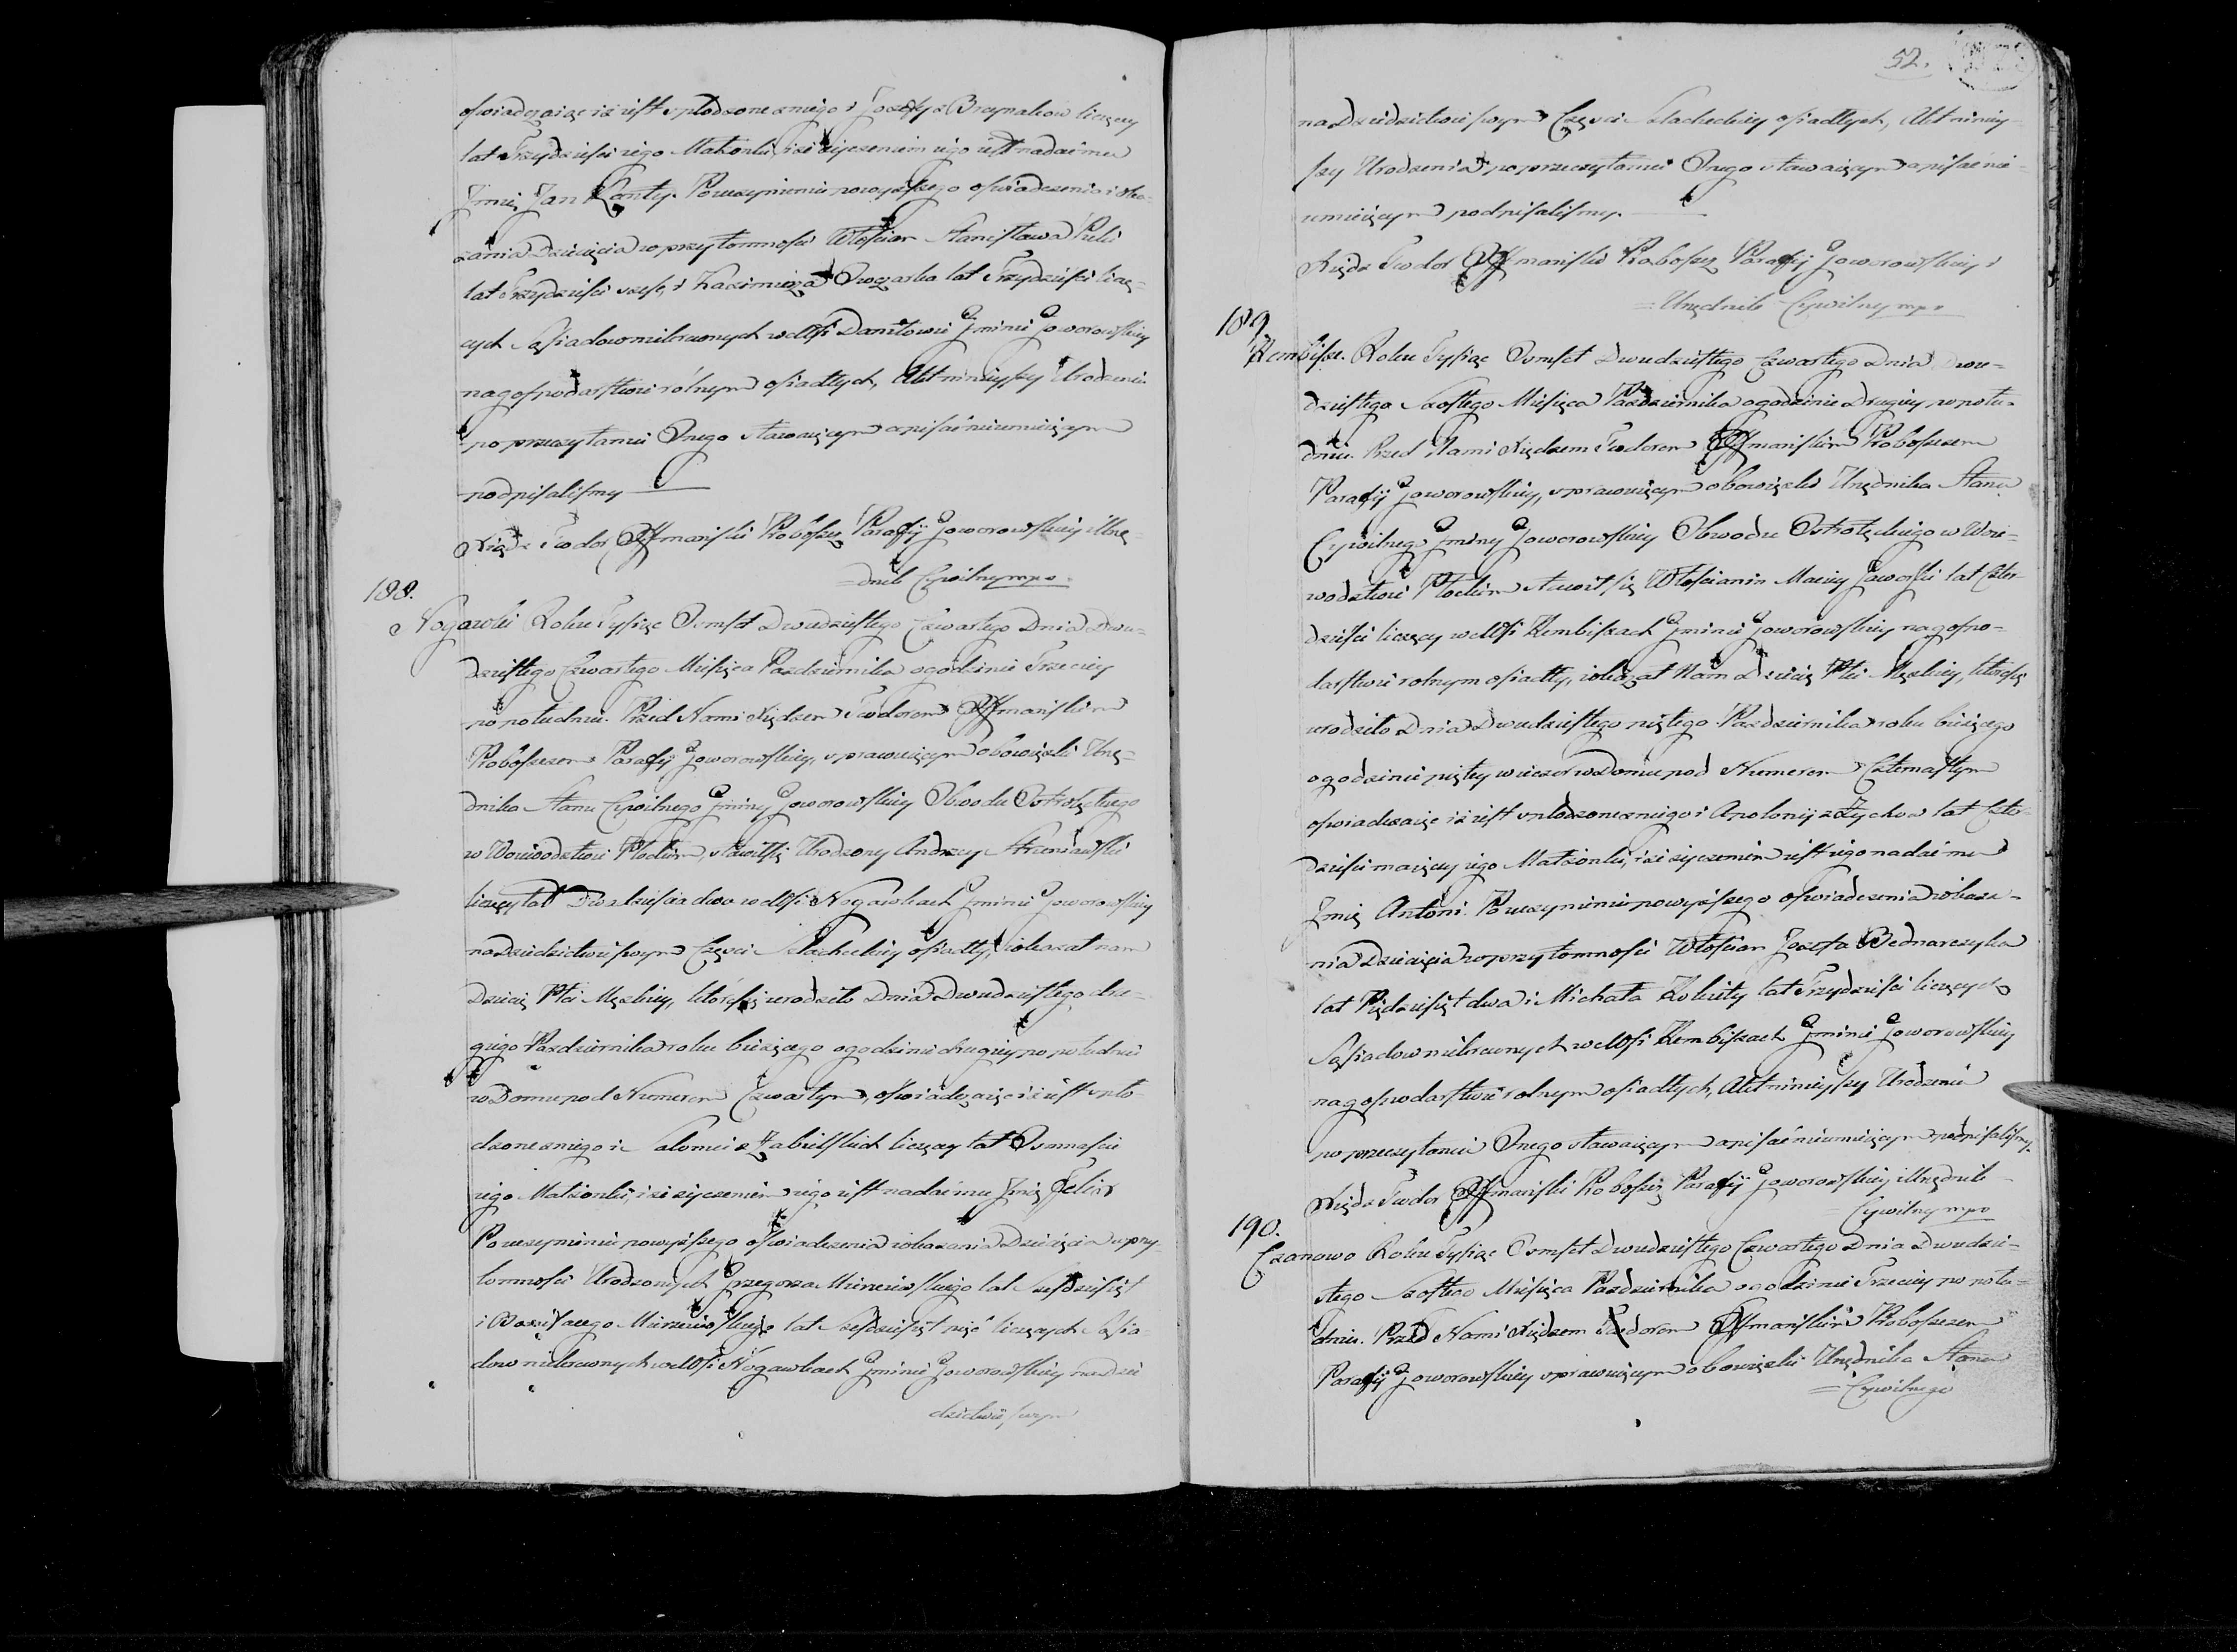 oświadczaiąc iż iest spłodzone z niego i Jozefy z Brzynakow liczący
lat Trzydzieści iego Małżonki, iże życzeniem iego iest nadać mu
Jmię Jan Kanty. Po uczynieniu powyższego oświadczenia i oka-
zania Dziecięcia w przytomności Włościan Stanisława
lat Trzydzieści sześć, i Kazimierza Owczarka lat Trzydzieści liczą-
cych Sąsiadow niekrewnych we Wsi Daniłowie Gminie Goworowskiey
na gospodarstwie rólnym osiadłych, Akt ninieyszy Urodzenia
po przeczytaniu Onego stawaiącym a pisać nieumieiącym
podpisaliśmy
Xiądz Teodor Offmański Proboszcz Parafij Goworowskiey i Urzę-
=dnik Cywilny mpr.
188.
Nogawki Roku Tysiąc Osmset Dwudziestego Czwartego Dnia Dwu-
dziestego Czwartego Miesiąca Pazdziernika o godzinie Trzeciey
po południu. Przed Nami Xiędzem Teodorem Offmańskim
Proboszczem Parafij Goworowskiey, sprawuiącym obowiązki Urzę-
dnika Stanu Cywilnego Gminy Goworowskiey Obwodu Ostrołęckiego
w Woiewodztwie Płockim, stawił się Urodzony Andrzey
liczący lat Dwadzieścia dwa we Wsi Nogawkach Gminie Goworowskiey
na Dziedzictwie swym Części Slacheckiey osiadły, i okazał nam
Dziecię Płci Męskiey, które się urodziło Dnia Dwudziestego dru-
giego Pazdziernika roku bieżącego o godzinie drugiey po południu
w Domu pod Numerem Czwartym, oświadczaiąc iż iest spło-
dzone z niego i Salomei z Zabielskich liczący lat Osmnaście
iego Małżonki, iże życzeniem iego iest nadać mu Jmię Felix
Po uczynieniu powyższego oświadczenia i okazania Dziecięcia w przy-
tomności Urodzonych Grzegorza Mierzeiewskiego lat Sześdziesiąt
i Mierzeiewskiego lat Sześdziesiąt pięć liczących Sąsia-
dow niekrewnych we Wsi Nogawkach Gminie Goworowskiey na Dzie
dzictwie swym
52.
na Dziedzictwie swym Części Slacheckiey osiadłych, Akt niniey-
szy Urodzenia po przeczytaniu Onego stawaiącym a pisać nie-
umieiącym podpisaliśmy.
Xiądz Teodor Offmański Proboszcz Parafij Goworowskiey i
=Urzędnik Cywilny mpr
189.
Rembisze. Roku Tysiąc Osmset Dwudziestego Czwartego Dnia Dwu-
dziestego Szostego Miesiąca Pazdziernika o godzinie Drugiey po połu-
dniu. Przed Nami Xiędzem Teodorem Offmańskim Proboszczem
Parafij Goworowskiey, sprawuiącym obowiązki Urzędnika Stanu
Cywilnego Gminy Goworowskiey Obwodu Ostrołęckiego w Woie-
wodztwie Płockim stawił się Włościanin Maciey Jaworski lat Czter-
dzieści liczący we Wsi Rembiszach Gminie Goworowskiey na gospo-
darstwie rolnym osiadły, i okazał Nam Dziecię Płci Męskiey, które się
urodziło Dnia Dwudziestego piątego Pazdziernika roku bieżącego
o godzinie piątey wieczor w Domu pod Numerem Czternastym
oświadczaiąc iż iest spłodzone z niego i Apolonij z Zychow lat Czter-
dzieści maiącey iego Małżonki, iże życzeniem iest iego nadać mu
Jmię Antoni. Po uczynieniu powyższego oświadczenia i okaza-
nia Dziecięcia w przytomności Włościan Jozefa Bednarczyka
lat Pięćdziesiąt dwa i Michała Kobuty lat Trzydzieści liczących
Sąsiadow niekrewnych we Wsi Rembiszach Gminie Goworowskiey
na gospodarstwie rolnym osiadłych, Akt ninieyszy Urodzenia
po przeczytaniu Onego stawaiącym a pisać nieumieiącym podpisaliśmy.
Xiądz Teodor Offmański Proboszcz Parafij Goworowskiey i Urzędnik
Cywilny mpr
190.
Czarnowo Roku Tysiąc Osmset Dwudziestego Czwartego Dnia Dwudzie-
stego Szostego Miesiąca Pazdziernika o godzinie Trzeciey po połu-
dniu. Przed Nami Xiędzem Teodorem Offmańskim Proboszczem
Parafij Goworowskiey sprawuiącym obowiązki Urzędnika Stanu
=Cywilnego